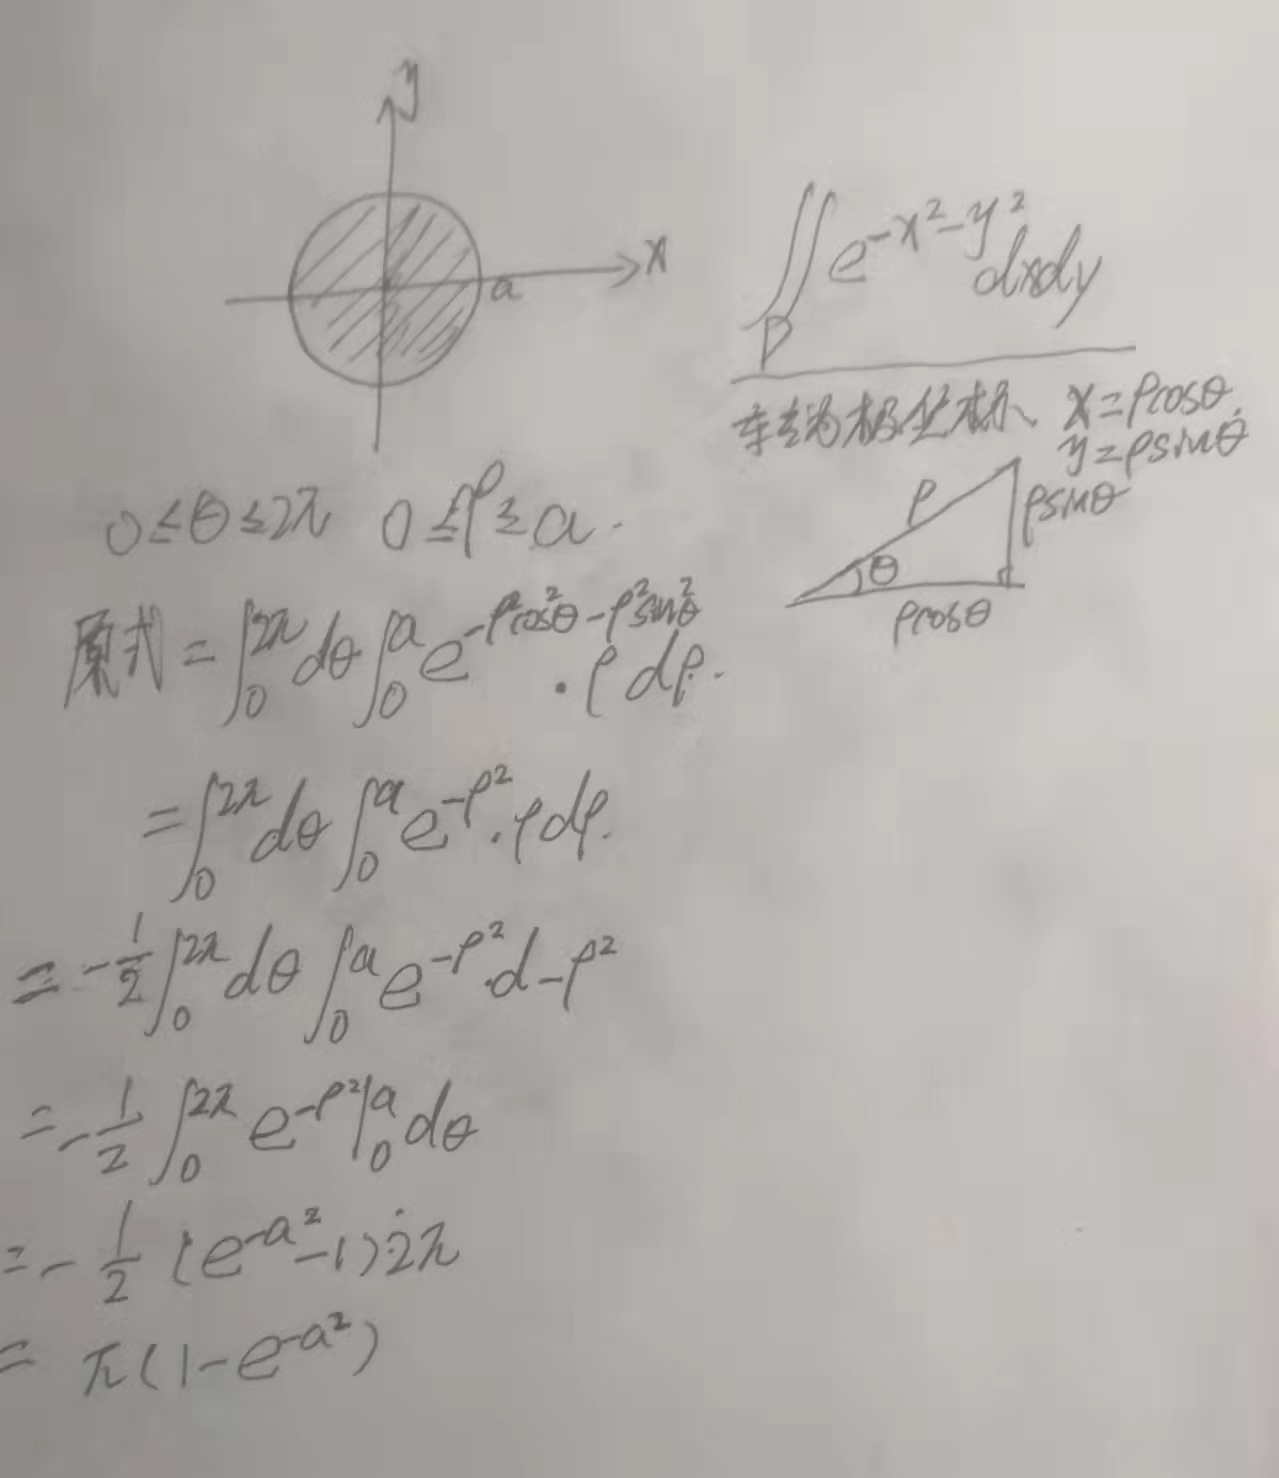 y
x
a
∬ e^{-x²-y²} dxdy
D
转为极坐标、 x=ρcosθ.
y=ρsinθ
ρ
ρsinθ
θ
ρcosθ
0≤θ≤2π 0≤ρ≥a.
原式=∫₀^{2π}dθ∫₀^{a}e^{-ρ²cos²θ-ρ²sin²θ}·ρdρ.
=∫₀^{2π}dθ∫₀^{a}e^{-ρ²}·ρdρ.
=-1/2∫₀^{2π}dθ∫₀^{a}e^{-ρ²}·d-ρ²
=-1/2∫₀^{2π}e^{-ρ²}|₀^{a}dθ
=-1/2(e^{-a²}-1)·2π
=π(1-e^{-a²})